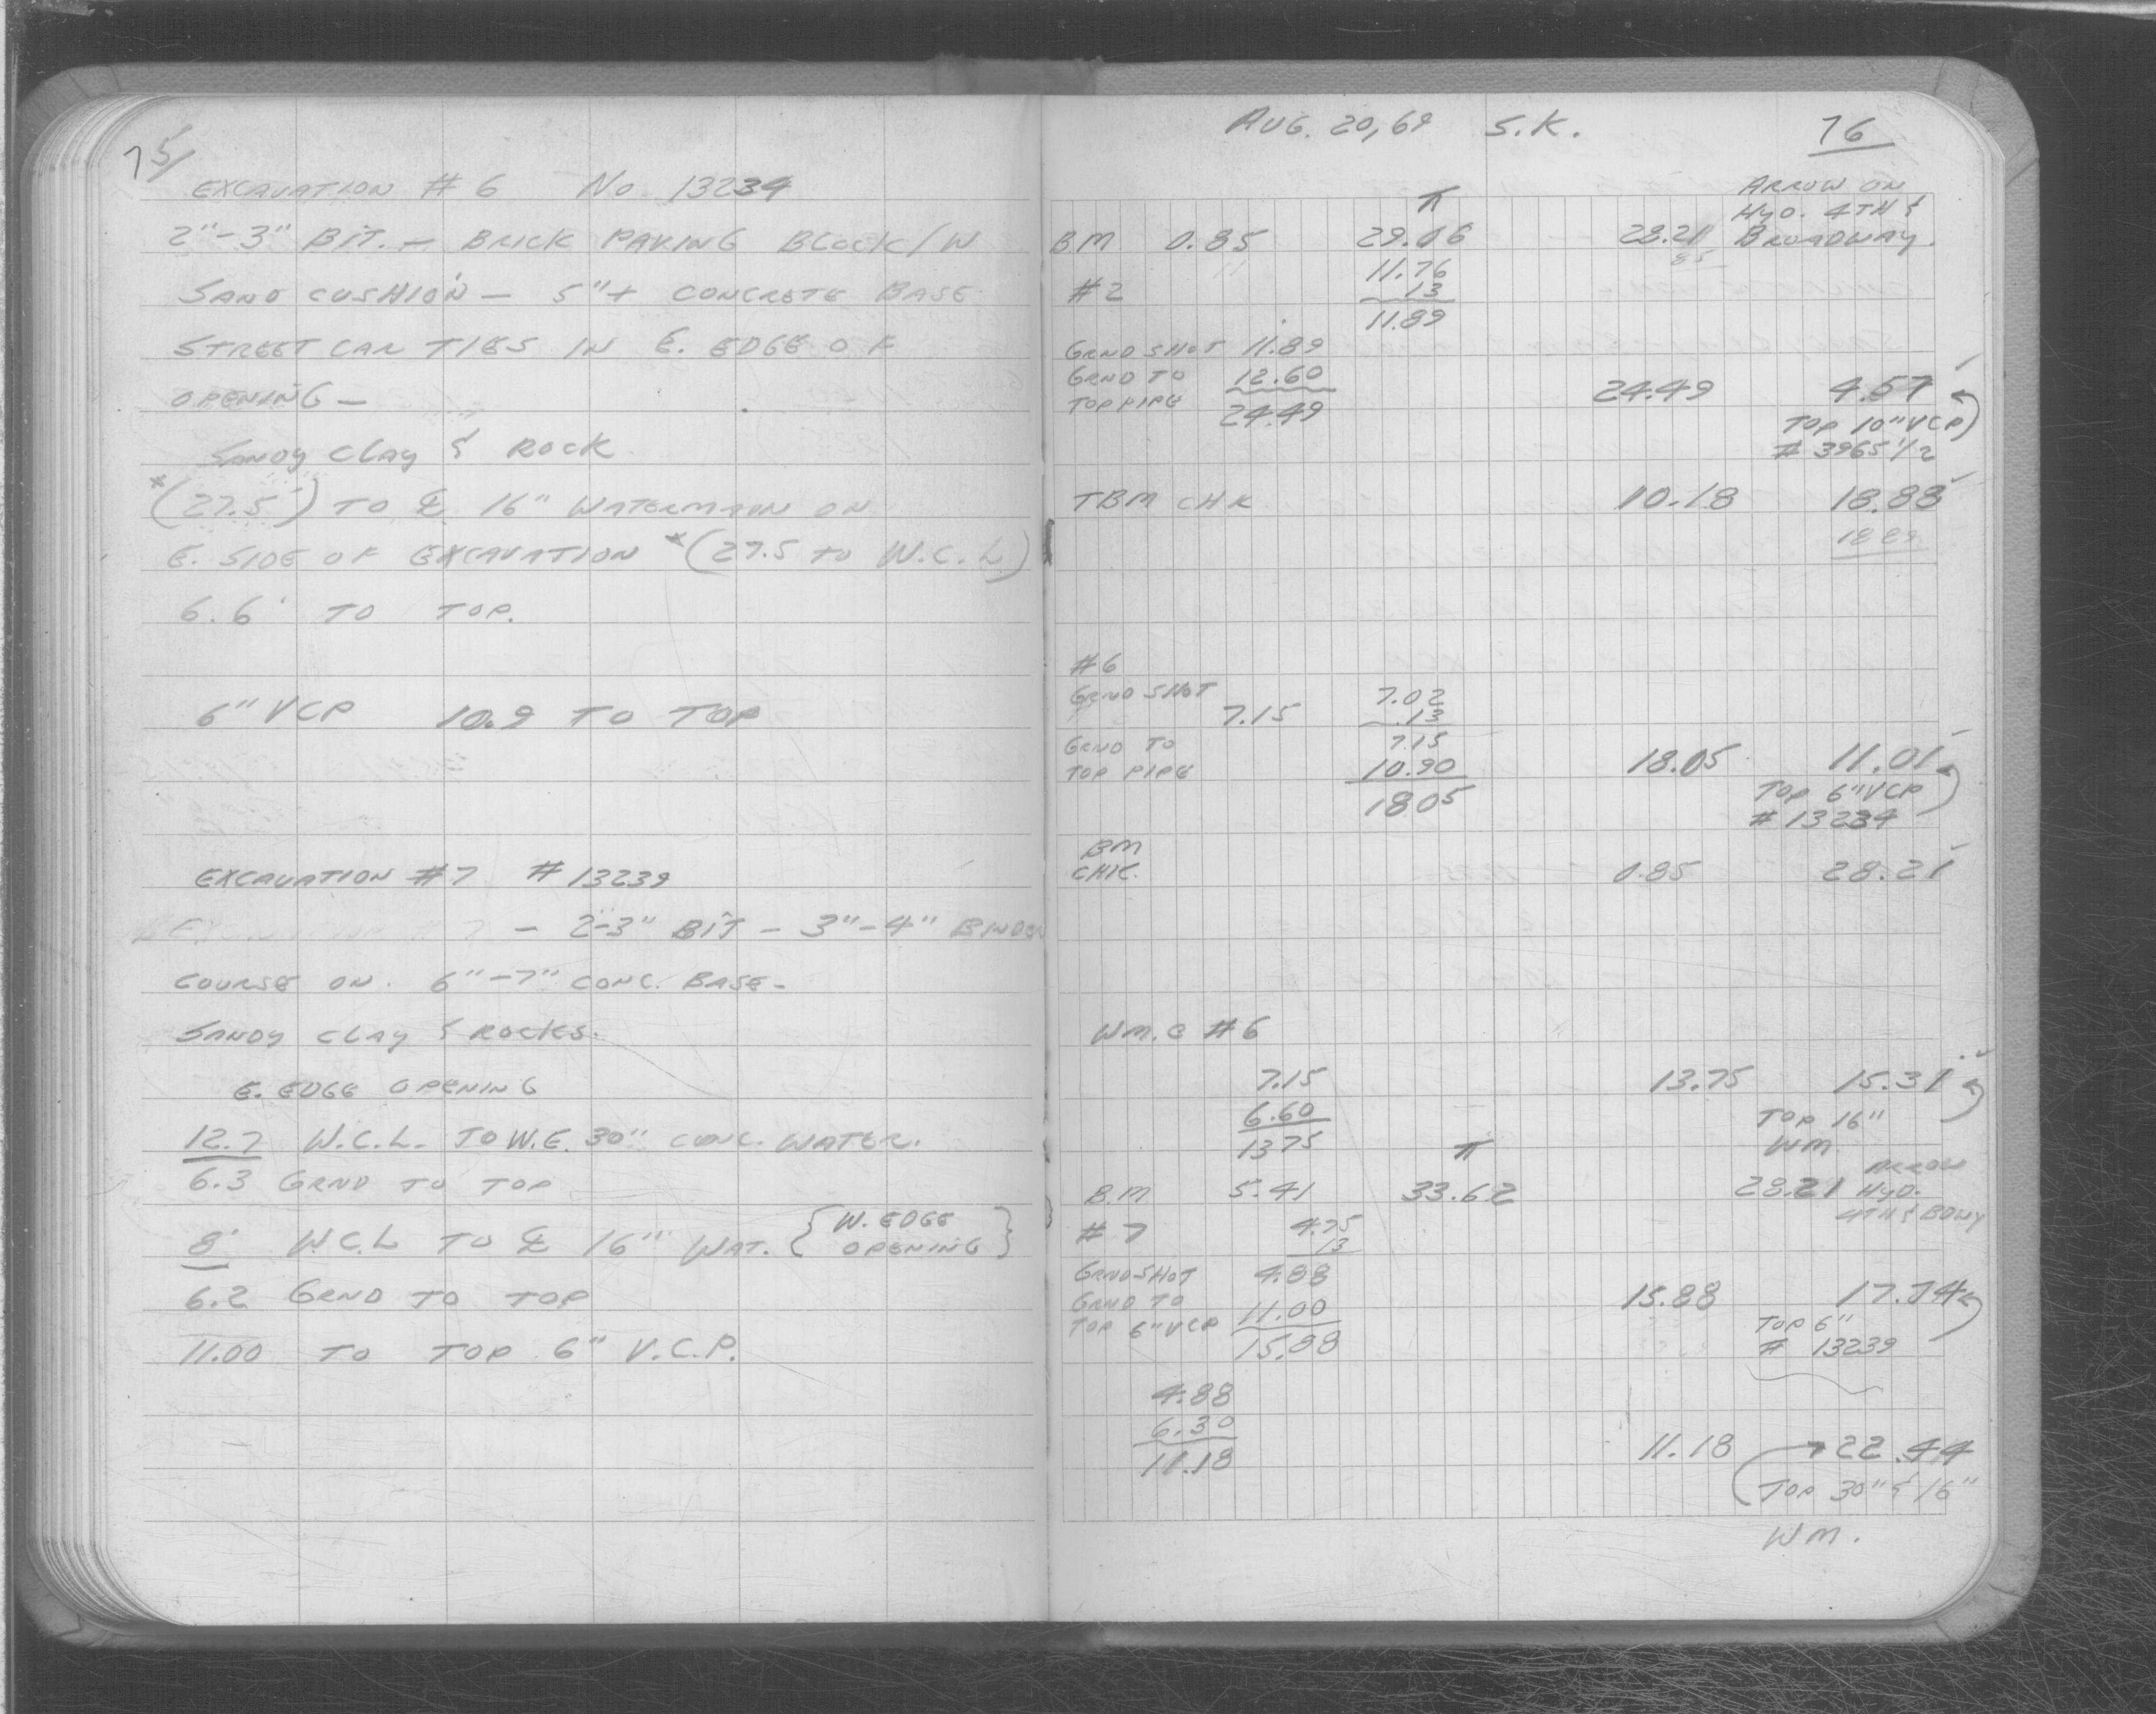 75/
EXCAVATION #6 No. 13234
2"-3" BIT. - BRICK PAVING BLOCK/W
SAND CUSHION - 5"± CONCRETE BASE
STREET CAR TIES IN E. EDGE OF
OPENING -
SANDY CLAY & ROCK
*(27.5') TO ℄ 16" WATERMAIN ON
E. SIDE OF EXCAVATION *(27.5 TO W.C.L)
6.6' TO TOP.
6" VCP 10.9 TO TOP
EXCAVATION #7 #13239
- 2-3" BIT - 3"-4" BINDER
COURSE ON. 6"-7" CONC. BASE -
SANDY CLAY & ROCKS.
E. EDGE OPENING
12.7 W.C.L. TO W.E. 30" CONC. WATER.
6.3 GRND TO TOP
8' W.C.L TO ℄ 16" WAT. { W. EDGE OPENING }
6.2 GRND TO TOP
11.00 TO TOP 6" V.C.P.
AUG. 20, 69 S.K. 76
ARROW ON
π HYD. 4TH &
B.M. 0.85 29.06 28.21 BROADWAY.
11.76
#2 13
11.89
GRND SHOT 11.89
GRND TO 12.60 24.49 4.57
TOP PIPE 24.49
TOP 10" VCP
# 3965 1/2
TBM CHK 10.18 18.88
18.89
#6
GRND SHOT 7.02
7.15 .13
GRND TO 7.15
TOP PIPE 10.90 18.05 11.01
18.05 TOP 6" VCP
# 13234
BM
CHK. 0.85 28.21
WM. @ #6
7.15 13.75 15.31
6.60 TOP 16"
13.75 π WM.
ARROW
B.M 5.41 33.62 28.21 HYD.
4TH & BDWY
#7 4.75
13
GRND SHOT 4.88
GRND TO 11.00 15.88 17.74
TOP 6" VCP 15.88 TOP 6"
# 13239
4.88
6.30
11.18 11.18 22.44
TOP 30" & 16"
WM.